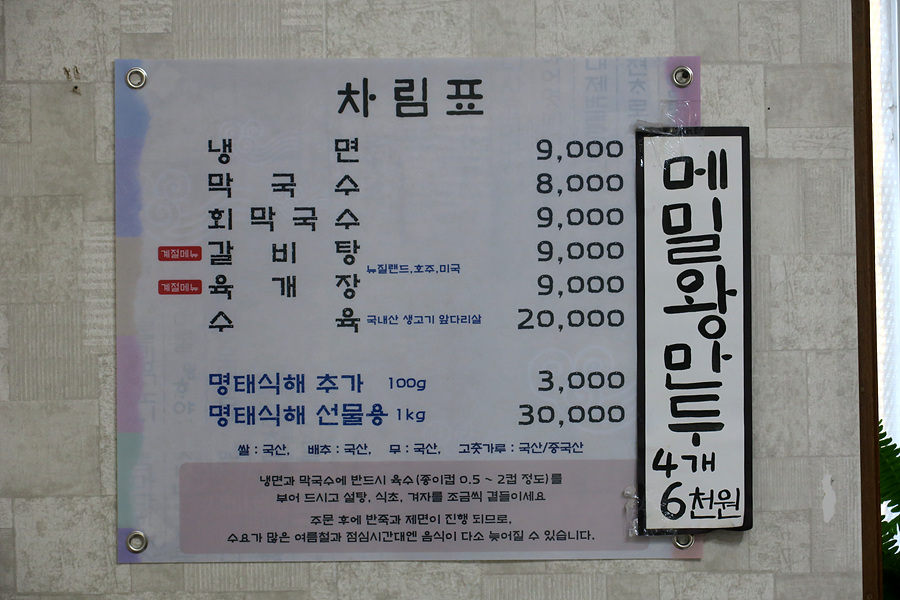 차림표
냉면 9,000
막국수 8,000
회막국수 9,000
계절메뉴 갈비탕 9,000
뉴질랜드,호주,미국
계절메뉴 육개장 9,000
수육 국내산 생고기 앞다리살 20,000
명태식해 추가 100g 3,000
명태식해 선물용 1kg 30,000
쌀 : 국산, 배추 : 국산, 무 : 국산, 고춧가루 : 국산/중국산
냉면과 막국수에 반드시 육수(종이컵 0.5 ~ 2컵 정도)를
부어 드시고 설탕, 식초, 겨자를 조금씩 곁들이세요
주문 후에 반죽과 제면이 진행 되므로,
수요가 많은 여름철과 점심시간대엔 음식이 다소 늦어질 수 있습니다.
메밀왕만두
4개
6천원